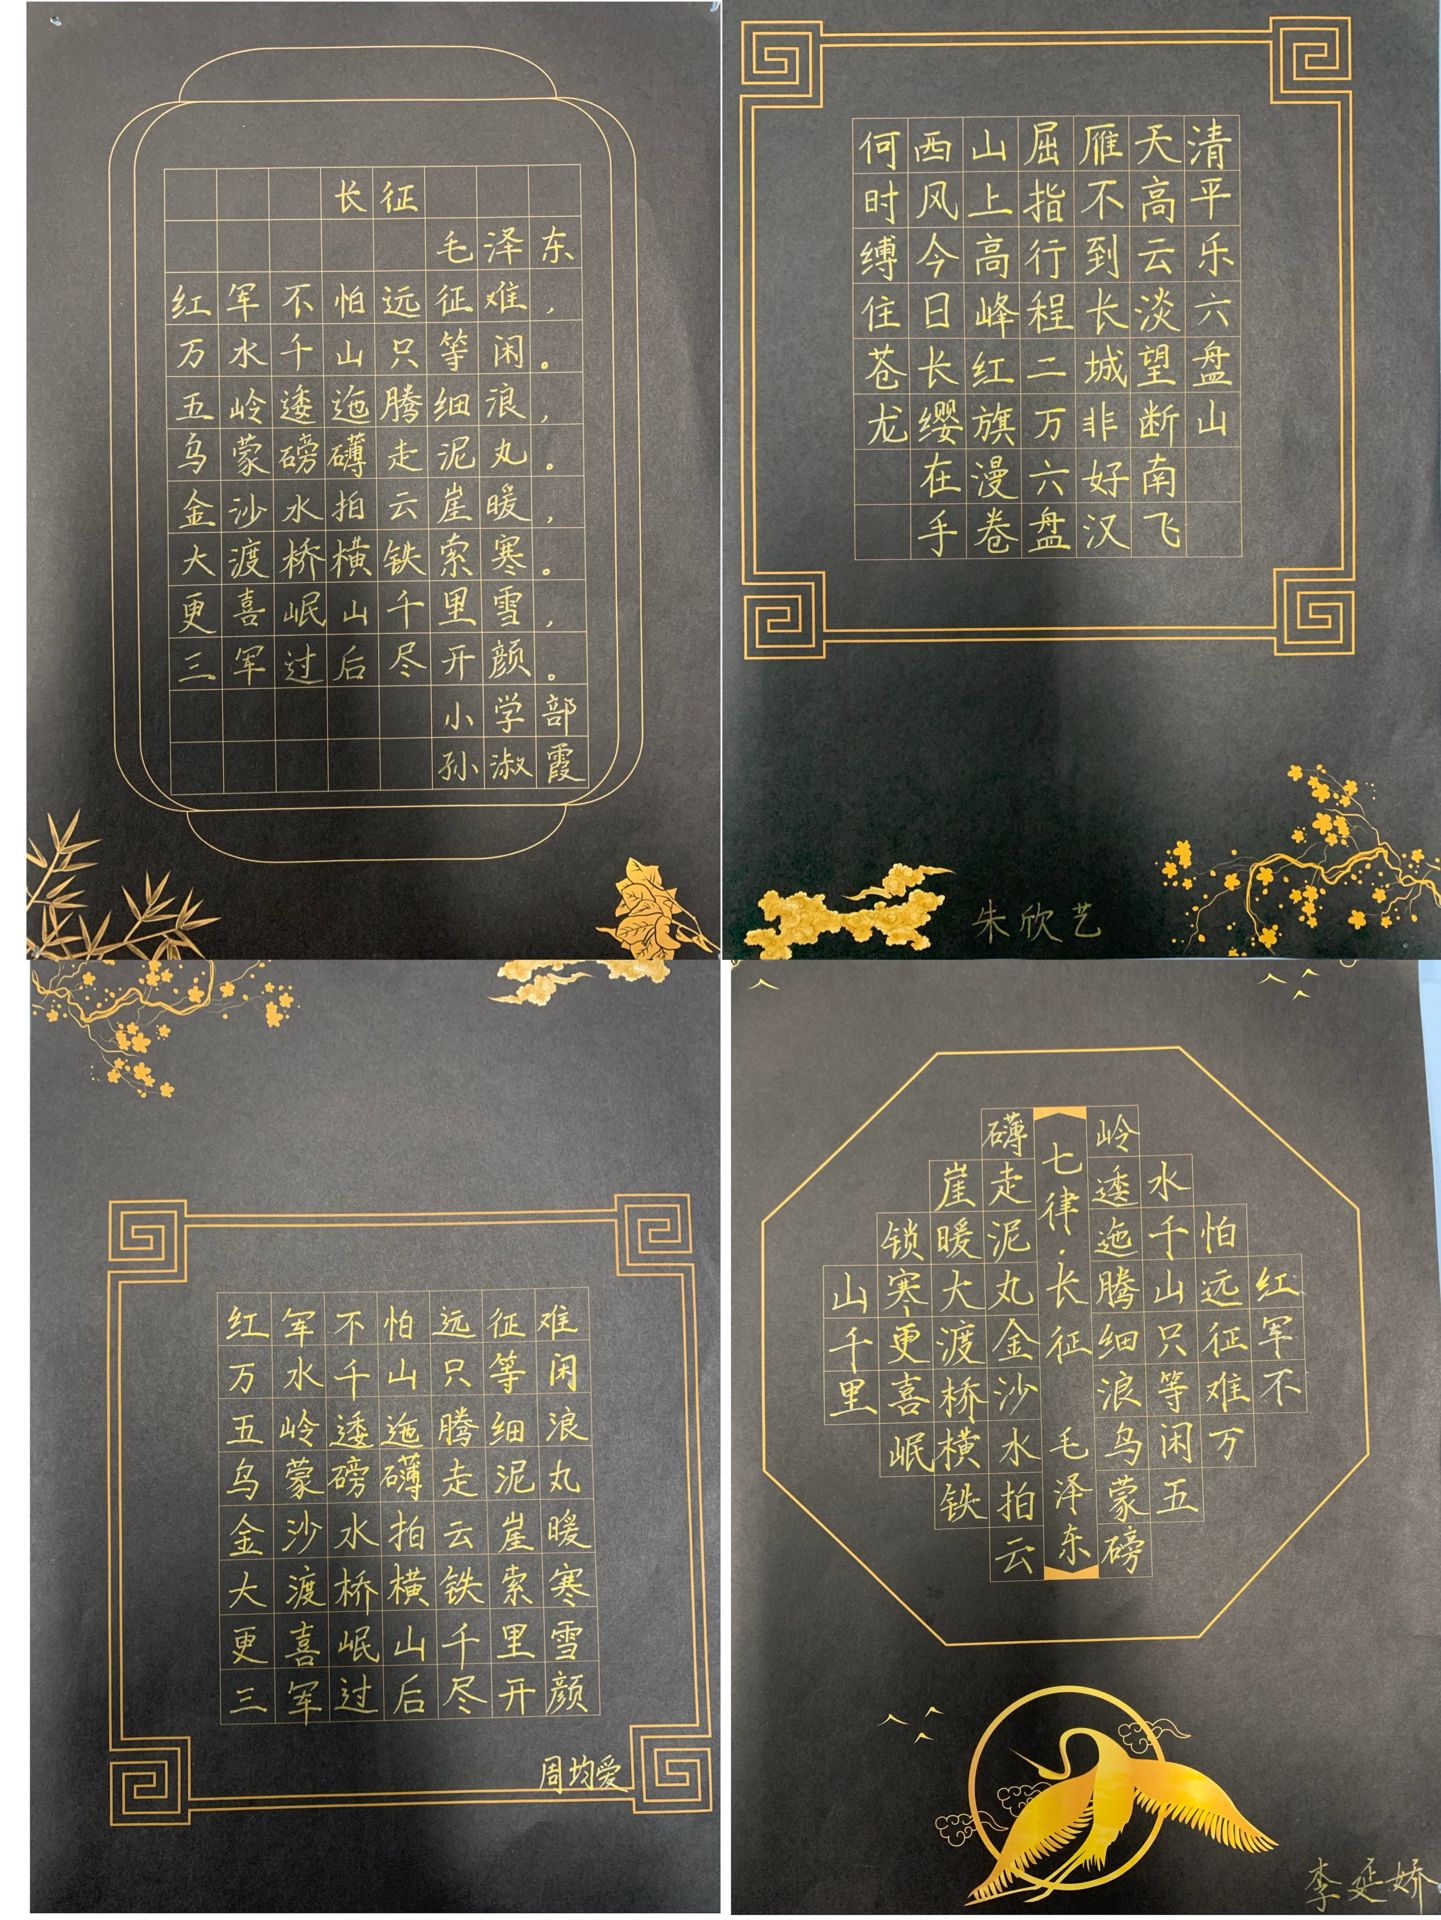 长征
毛泽东
红军不怕远征难，
万水千山只等闲。
五岭逶迤腾细浪，
乌蒙磅礴走泥丸。
金沙水拍云崖暖，
大渡桥横铁索寒。
更喜岷山千里雪，
三军过后尽开颜。
小学部
孙淑霞
清平乐六盘山
天高云淡望断南飞
雁不到长城非好汉
屈指行程二万六盘
山上高峰红旗漫卷
西风今日长缨在手
何时缚住苍龙
朱欣艺
红军不怕远征难
万水千山只等闲
五岭逶迤腾细浪
乌蒙磅礴走泥丸
金沙水拍云崖暖
大渡桥横铁索寒
更喜岷山千里雪
三军过后尽开颜
周均爱
红军不
怕远征难万
水千山只等闲五
岭逶迤腾细浪乌蒙磅
七律·长征 毛泽东
礴走泥丸金沙水拍云
崖暖大渡桥横铁
锁寒更喜岷
山千里
李延娇